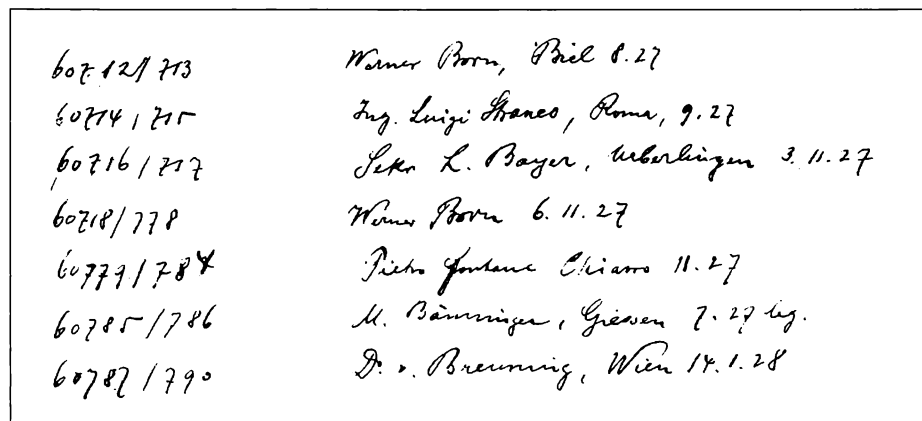 60712/713 Werner Born, Biel 8.27
60714/715 Ing. Luigi Straneo, Roma, 9.27
60716/717 Sekr L. Bayer, Ueberlingen 3.11.27
60718/778 Werner Born 6.11.27
60779/784 Pietro Fontana Chiavo 11.27
60785/786 M. Bänninger, Giessen 7.27 leg.
60787/790 Dr. v. Breunning, Wien 14.1.28